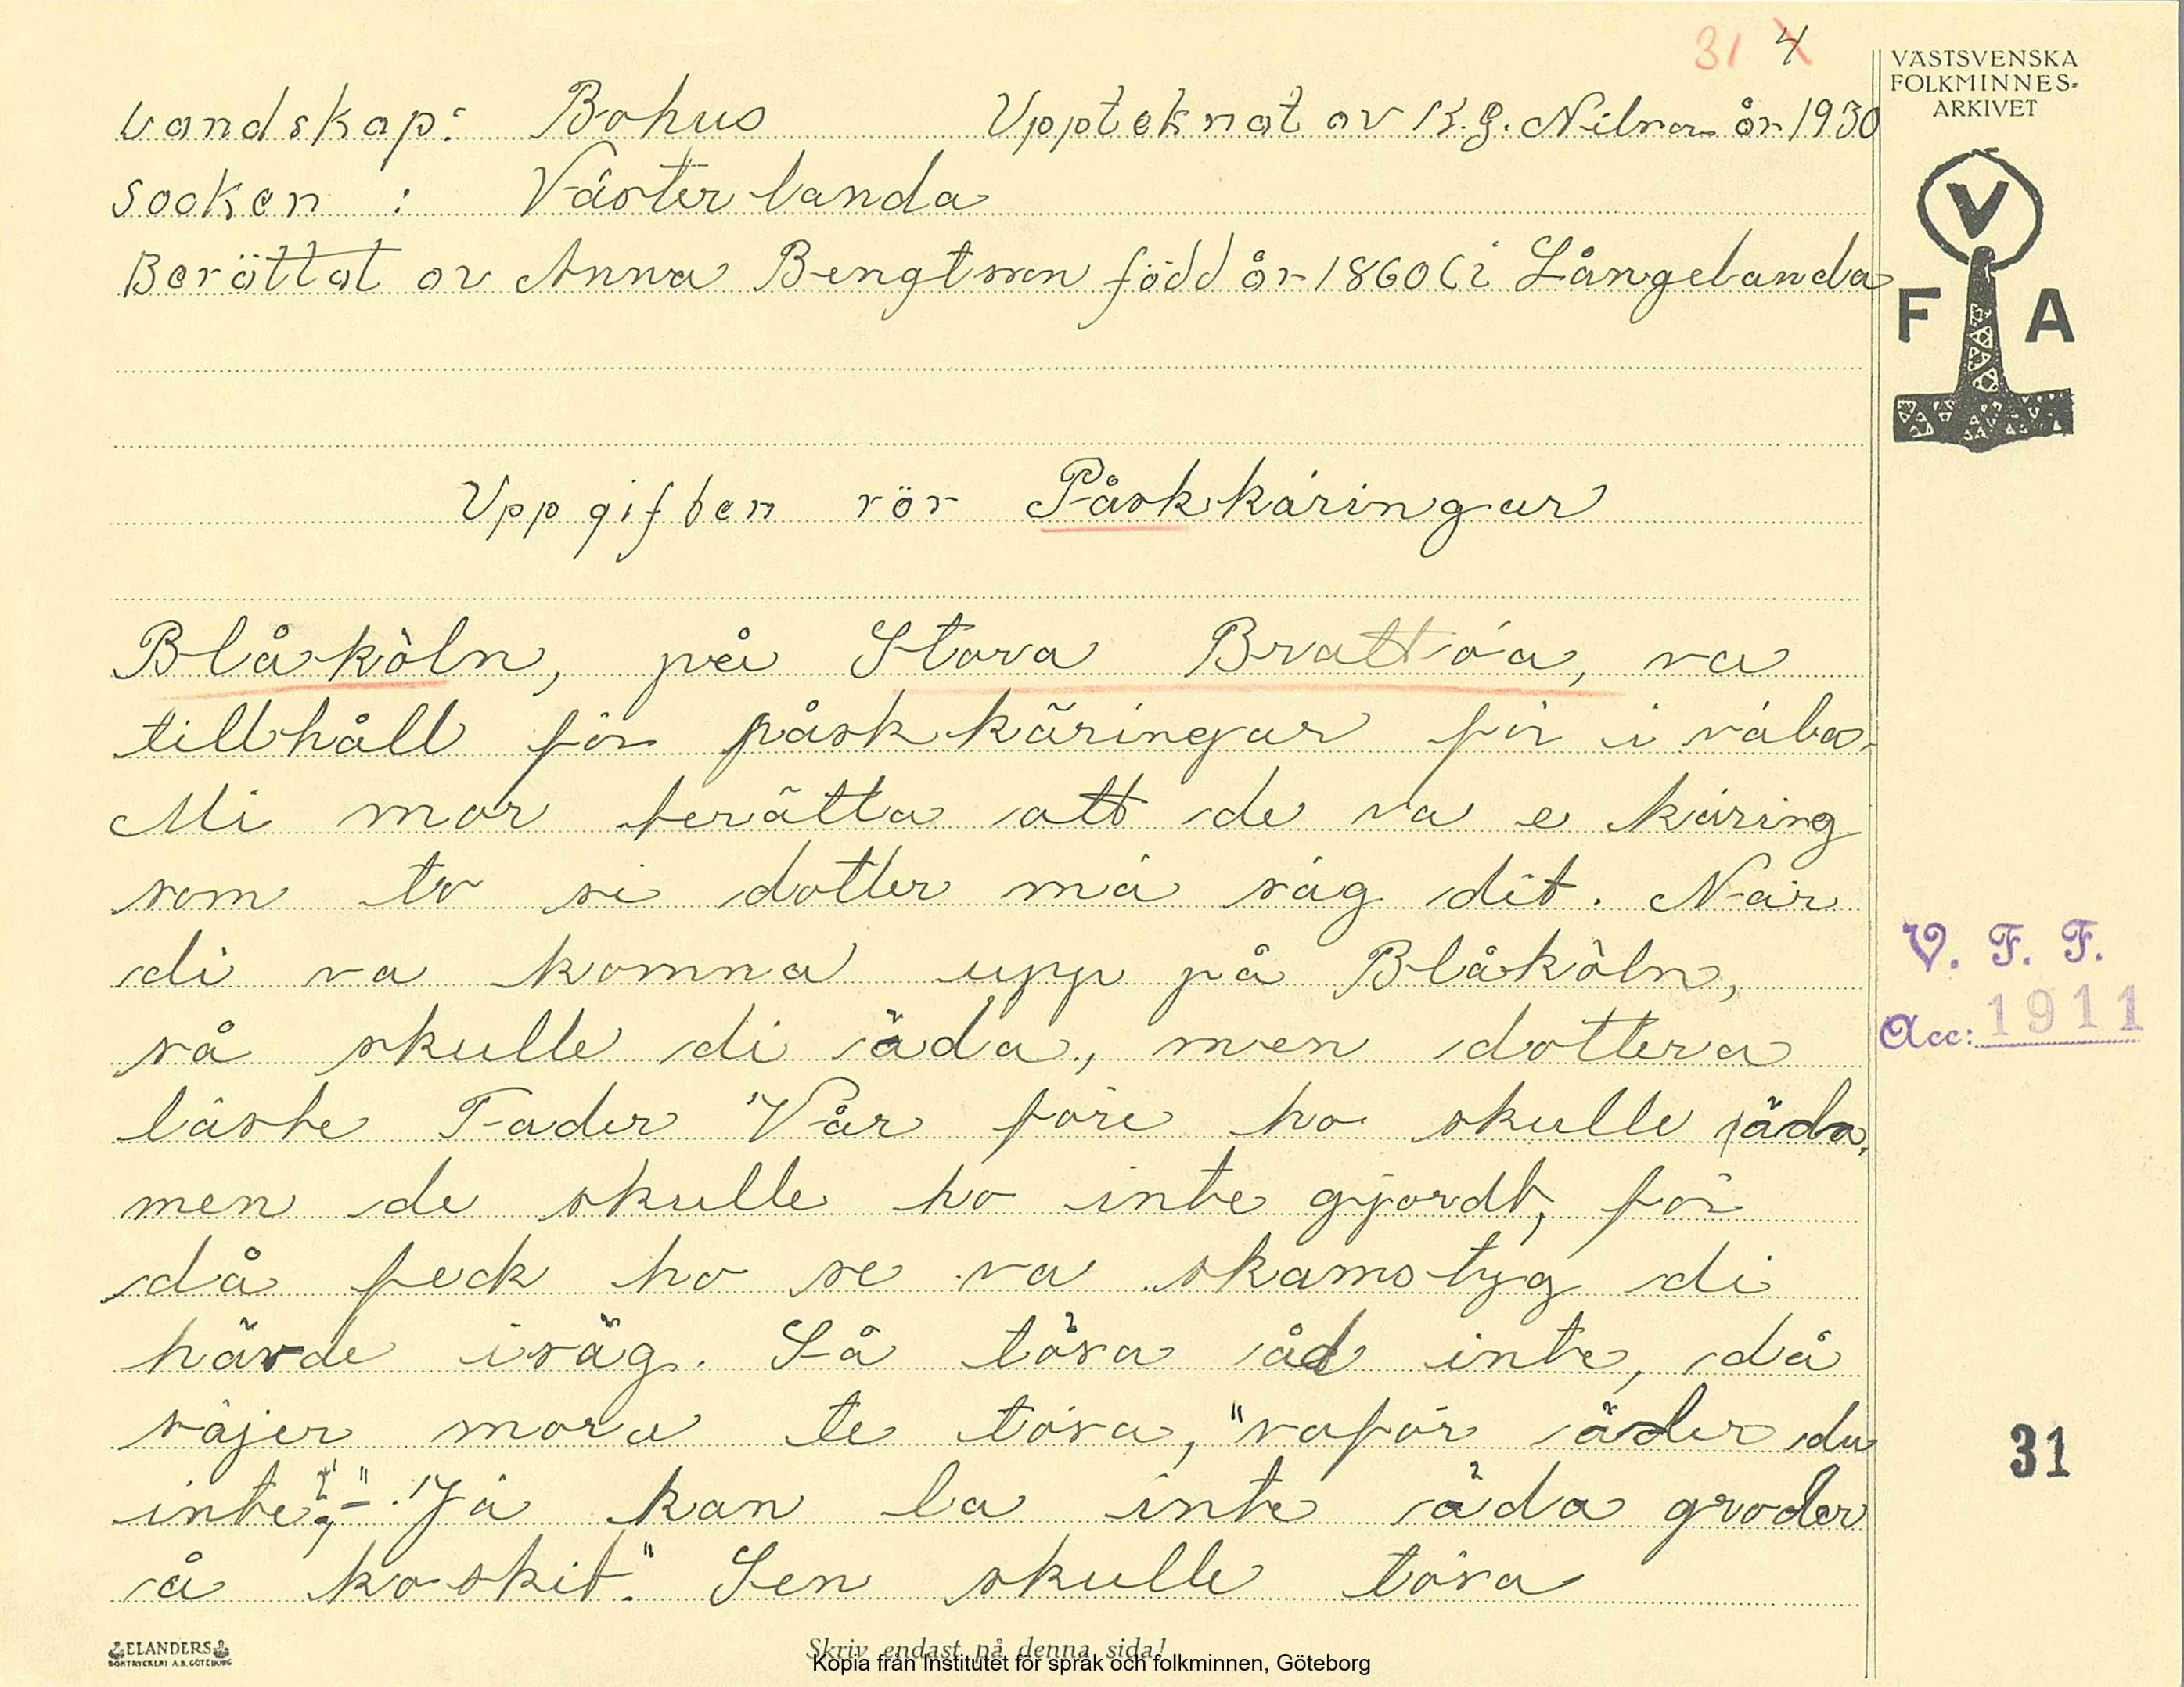 31 4
VÄSTSVENSKA
FOLKMINNES-
ARKIVET
Landskap: Bohus Uppteknat av K.G. Nilson år 1930
Socken : Västerlanda
Berättat av Anna Bengtson född år 1860 i Långelanda
V
F A
Uppgiften rör Påskkäringar
Blåkòln, på Stora Brattóa, va
tillhåll för påskkäringar för i väla.
Mi mor berätta att de va e käring
som to si dotter mä säg dit. När
di va komna upp på Blåkòln,
så skulle di äda, men dottera
läste Fader Vår före ho skulle äda,
men de skulle ho inte gjordt, för
då feck ho se va skamstyg di
hävde isäg. Så tösa åd inte, då
säjer mora te tösa, "vaför äder du
inte?" – "Ja kan la inte äda groder
å koskit." Sen skulle tösa
V. F. F.
Acc: 1911
31
ELANDERS
BOKTRYCKERI A.B. GÖTEBORG
Skriv endast på denna sida!
Kopia från Institutet för språk och folkminnen, Göteborg